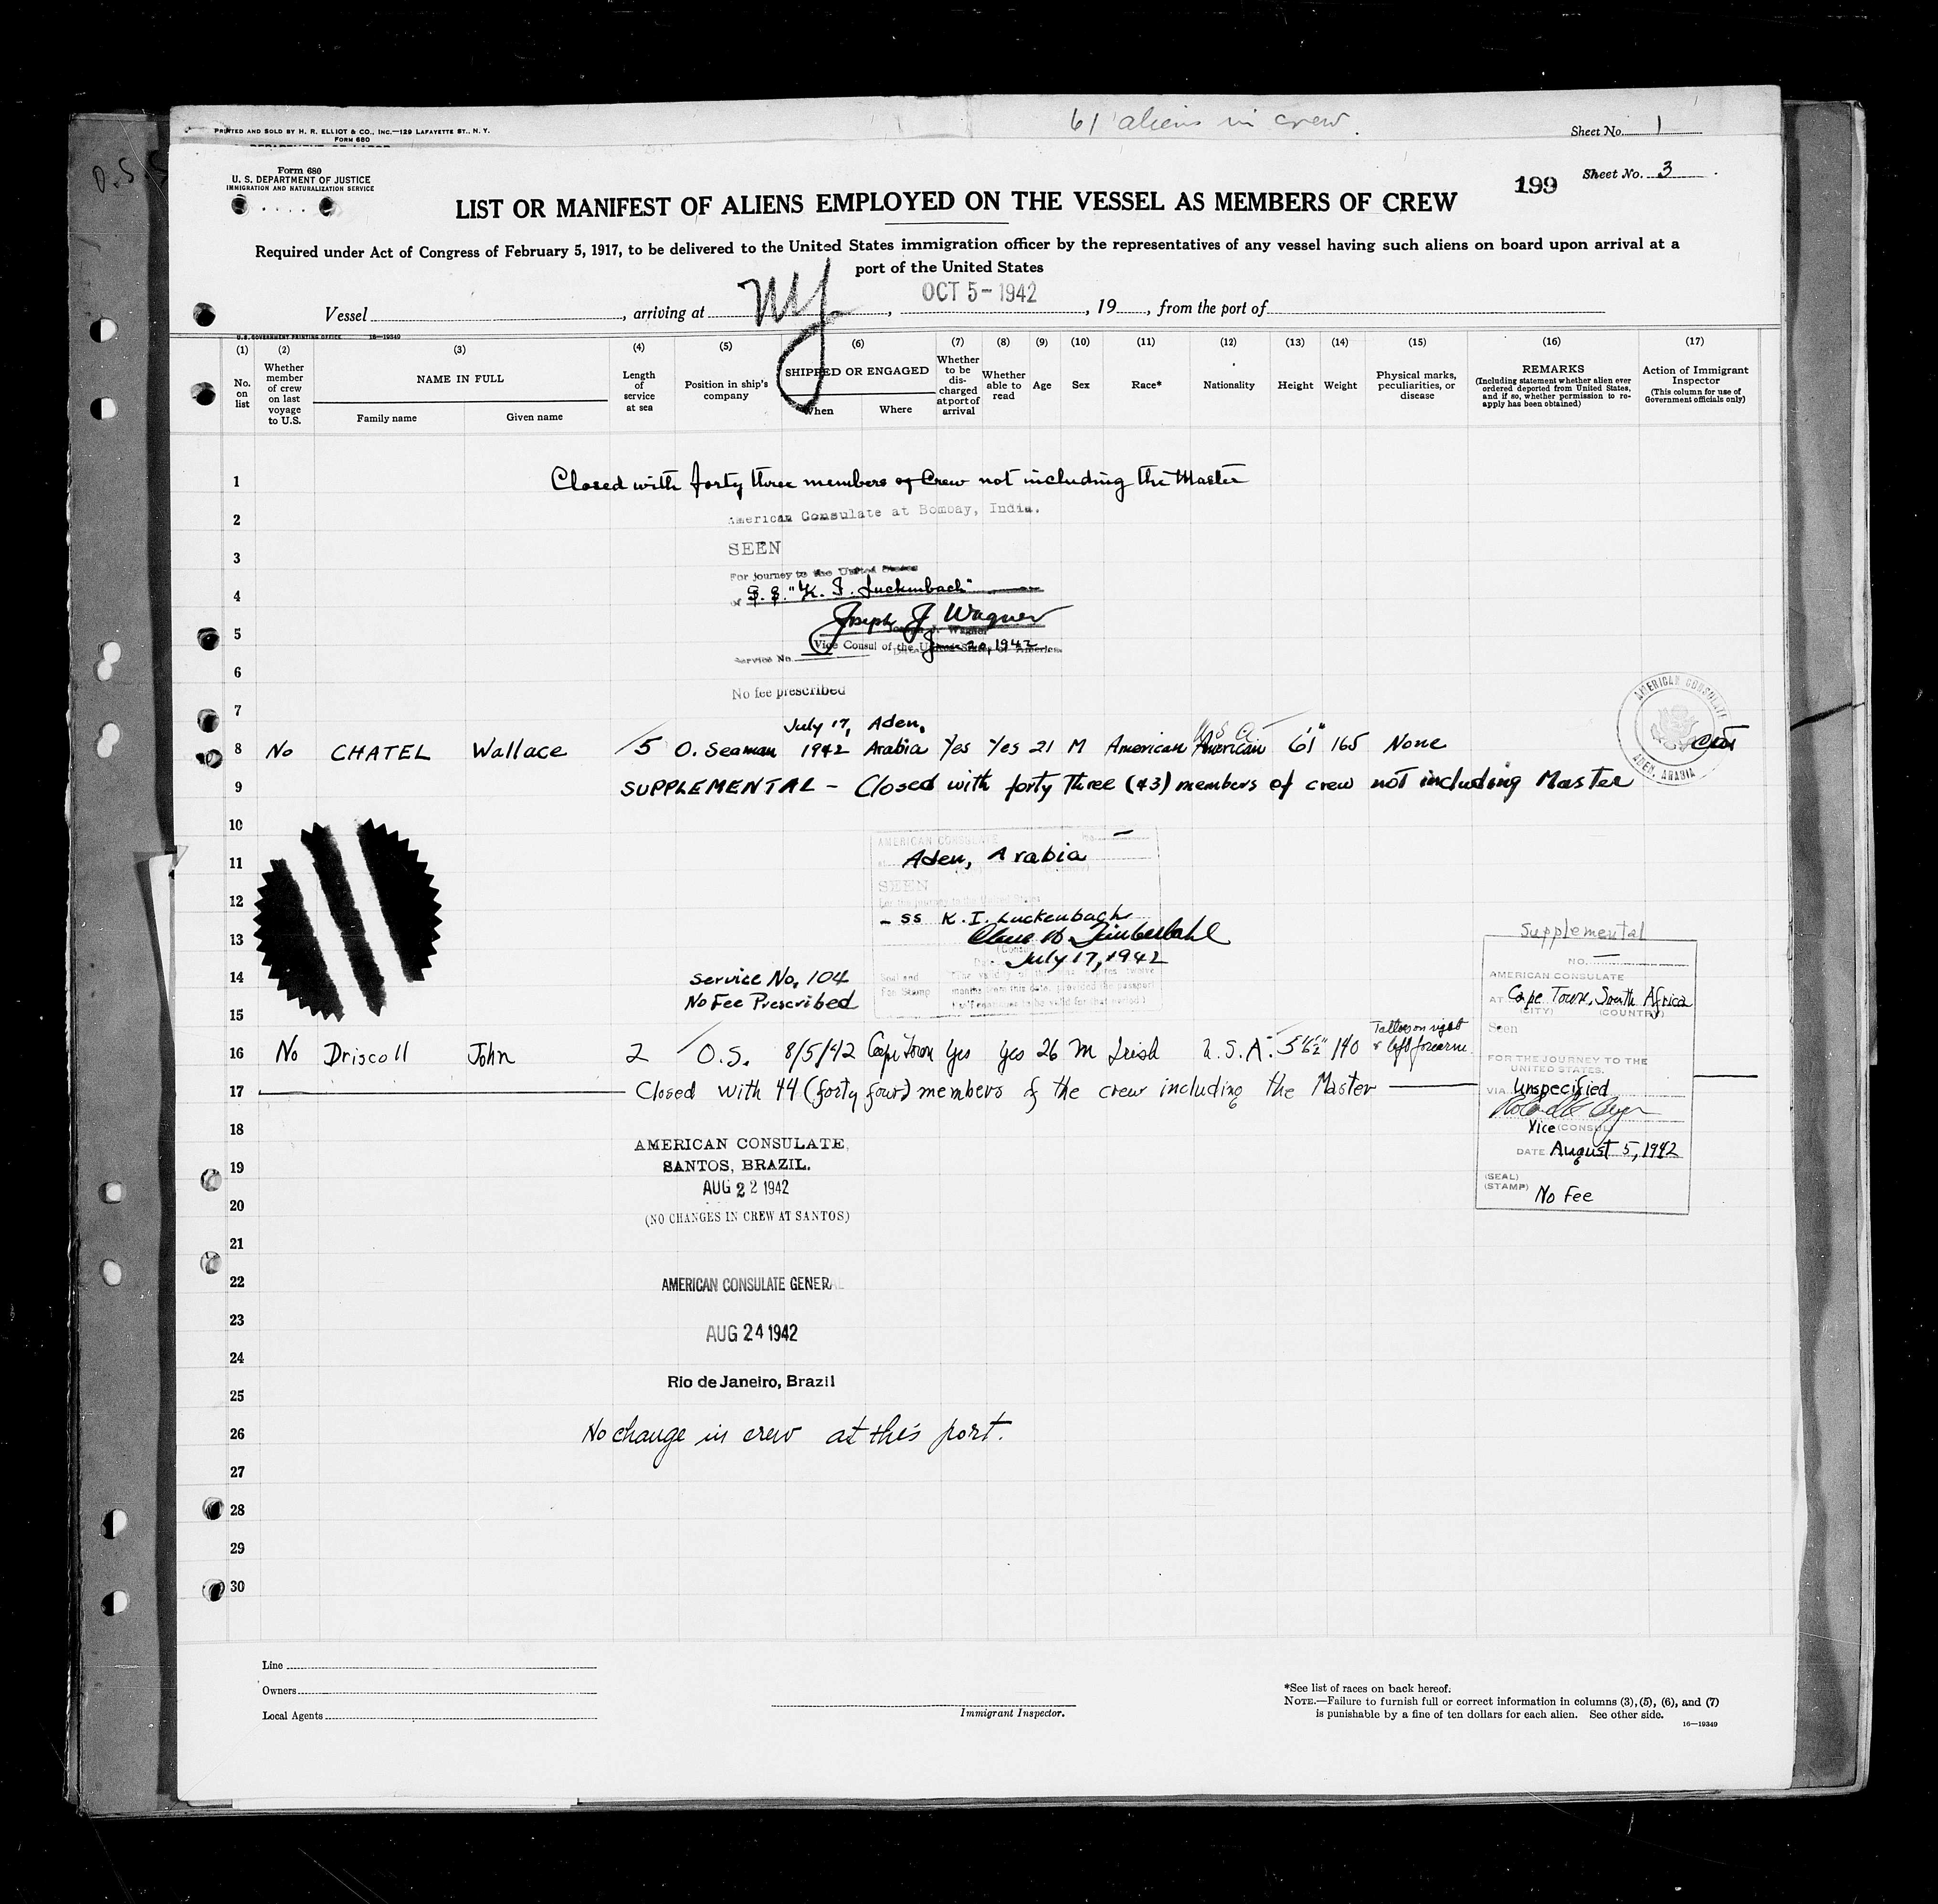 61 aliens in crew.
PRINTED AND SOLD BY H. R. ELLIOT & CO., INC.—129 LAFAYETTE ST., N. Y.
FORM 680
Sheet No. 1
Form 680
U. S. DEPARTMENT OF JUSTICE
IMMIGRATION AND NATURALIZATION SERVICE
199
Sheet No. 3
LIST OR MANIFEST OF ALIENS EMPLOYED ON THE VESSEL AS MEMBERS OF CREW
Required under Act of Congress of February 5, 1917, to be delivered to the United States immigration officer by the representatives of any vessel having such aliens on board upon arrival at a
port of the United States
Vessel , arriving at NY , OCT 5 - 1942 , 19 , from the port of
U. S. GOVERNMENT PRINTING OFFICE 16—19349
(1) No. on list
(2) Whether member of crew on last voyage to U.S.
(3) NAME IN FULL
Family name Given name
(4) Length of service at sea
(5) Position in ship's company
(6) SHIPPED OR ENGAGED
When Where
(7) Whether to be discharged at port of arrival
(8) Whether able to read
(9) Age
(10) Sex
(11) Race*
(12) Nationality
(13) Height
(14) Weight
(15) Physical marks, peculiarities, or disease
(16) REMARKS
(Including statement whether alien ever ordered deported from United States, and if so, whether permission to reapply has been obtained)
(17) Action of Immigrant Inspector
(This column for use of Government officials only)
1 Closed with forty three members of Crew not including the Master
2 American Consulate at Bombay, India.
3 SEEN
For journey to the United States
4 of S.S. "K. I. Luckenbach"
5 Joseph J Wagner
Joseph J. Wagner
Vice Consul of the United States of America
20, 1942
Service No.
6
No fee prescribed
7
July 17, Aden,
U S A
8 No CHATEL Wallace 5 O. Seaman 1942 Arabia Yes Yes 21 M American American 6'1" 165 None
AMERICAN CONSULATE
ADEN, ARABIA
9 SUPPLEMENTAL - Closed with forty three (43) members of crew not including Master
10
AMERICAN CONSULATE No. —
11 Aden, Arabia
12 SEEN
For the journey to the United States
- SS K. I. Luckenbach
13
(Consul)
July 17, 1942
14 Service No. 104
Seal and Fee Stamp
(The validity of this visa expires twelve months from this date, provided the passport continues to be valid for that period.)
No Fee Prescribed
15
Supplemental
NO. —
AMERICAN CONSULATE
AT Cape Town, South Africa
(CITY) (COUNTRY)
Seen
FOR THE JOURNEY TO THE
UNITED STATES.
VIA Unspecified
Vice (CONSUL)
DATE August 5, 1942
(SEAL)
(STAMP) No Fee
Tattoo on right
16 No Driscoll John 2 O.S. 8/5/42 Cape Town Yes Yes 26 M Irish U.S.A. 5'6½" 140 & left forearm.
17 Closed with 44 (forty four) members of the crew including the Master
18 AMERICAN CONSULATE,
19 SANTOS, BRAZIL.
AUG 22 1942
20
(NO CHANGES IN CREW AT SANTOS)
21
22 AMERICAN CONSULATE GENERAL
23
AUG 24 1942
24
Rio de Janeiro, Brazil
25
26 No change in crew at this port.
27
28
29
30
Line
Owners
Local Agents
Immigrant Inspector.
*See list of races on back hereof.
NOTE.—Failure to furnish full or correct information in columns (3), (5), (6), and (7)
is punishable by a fine of ten dollars for each alien. See other side.
16—19349